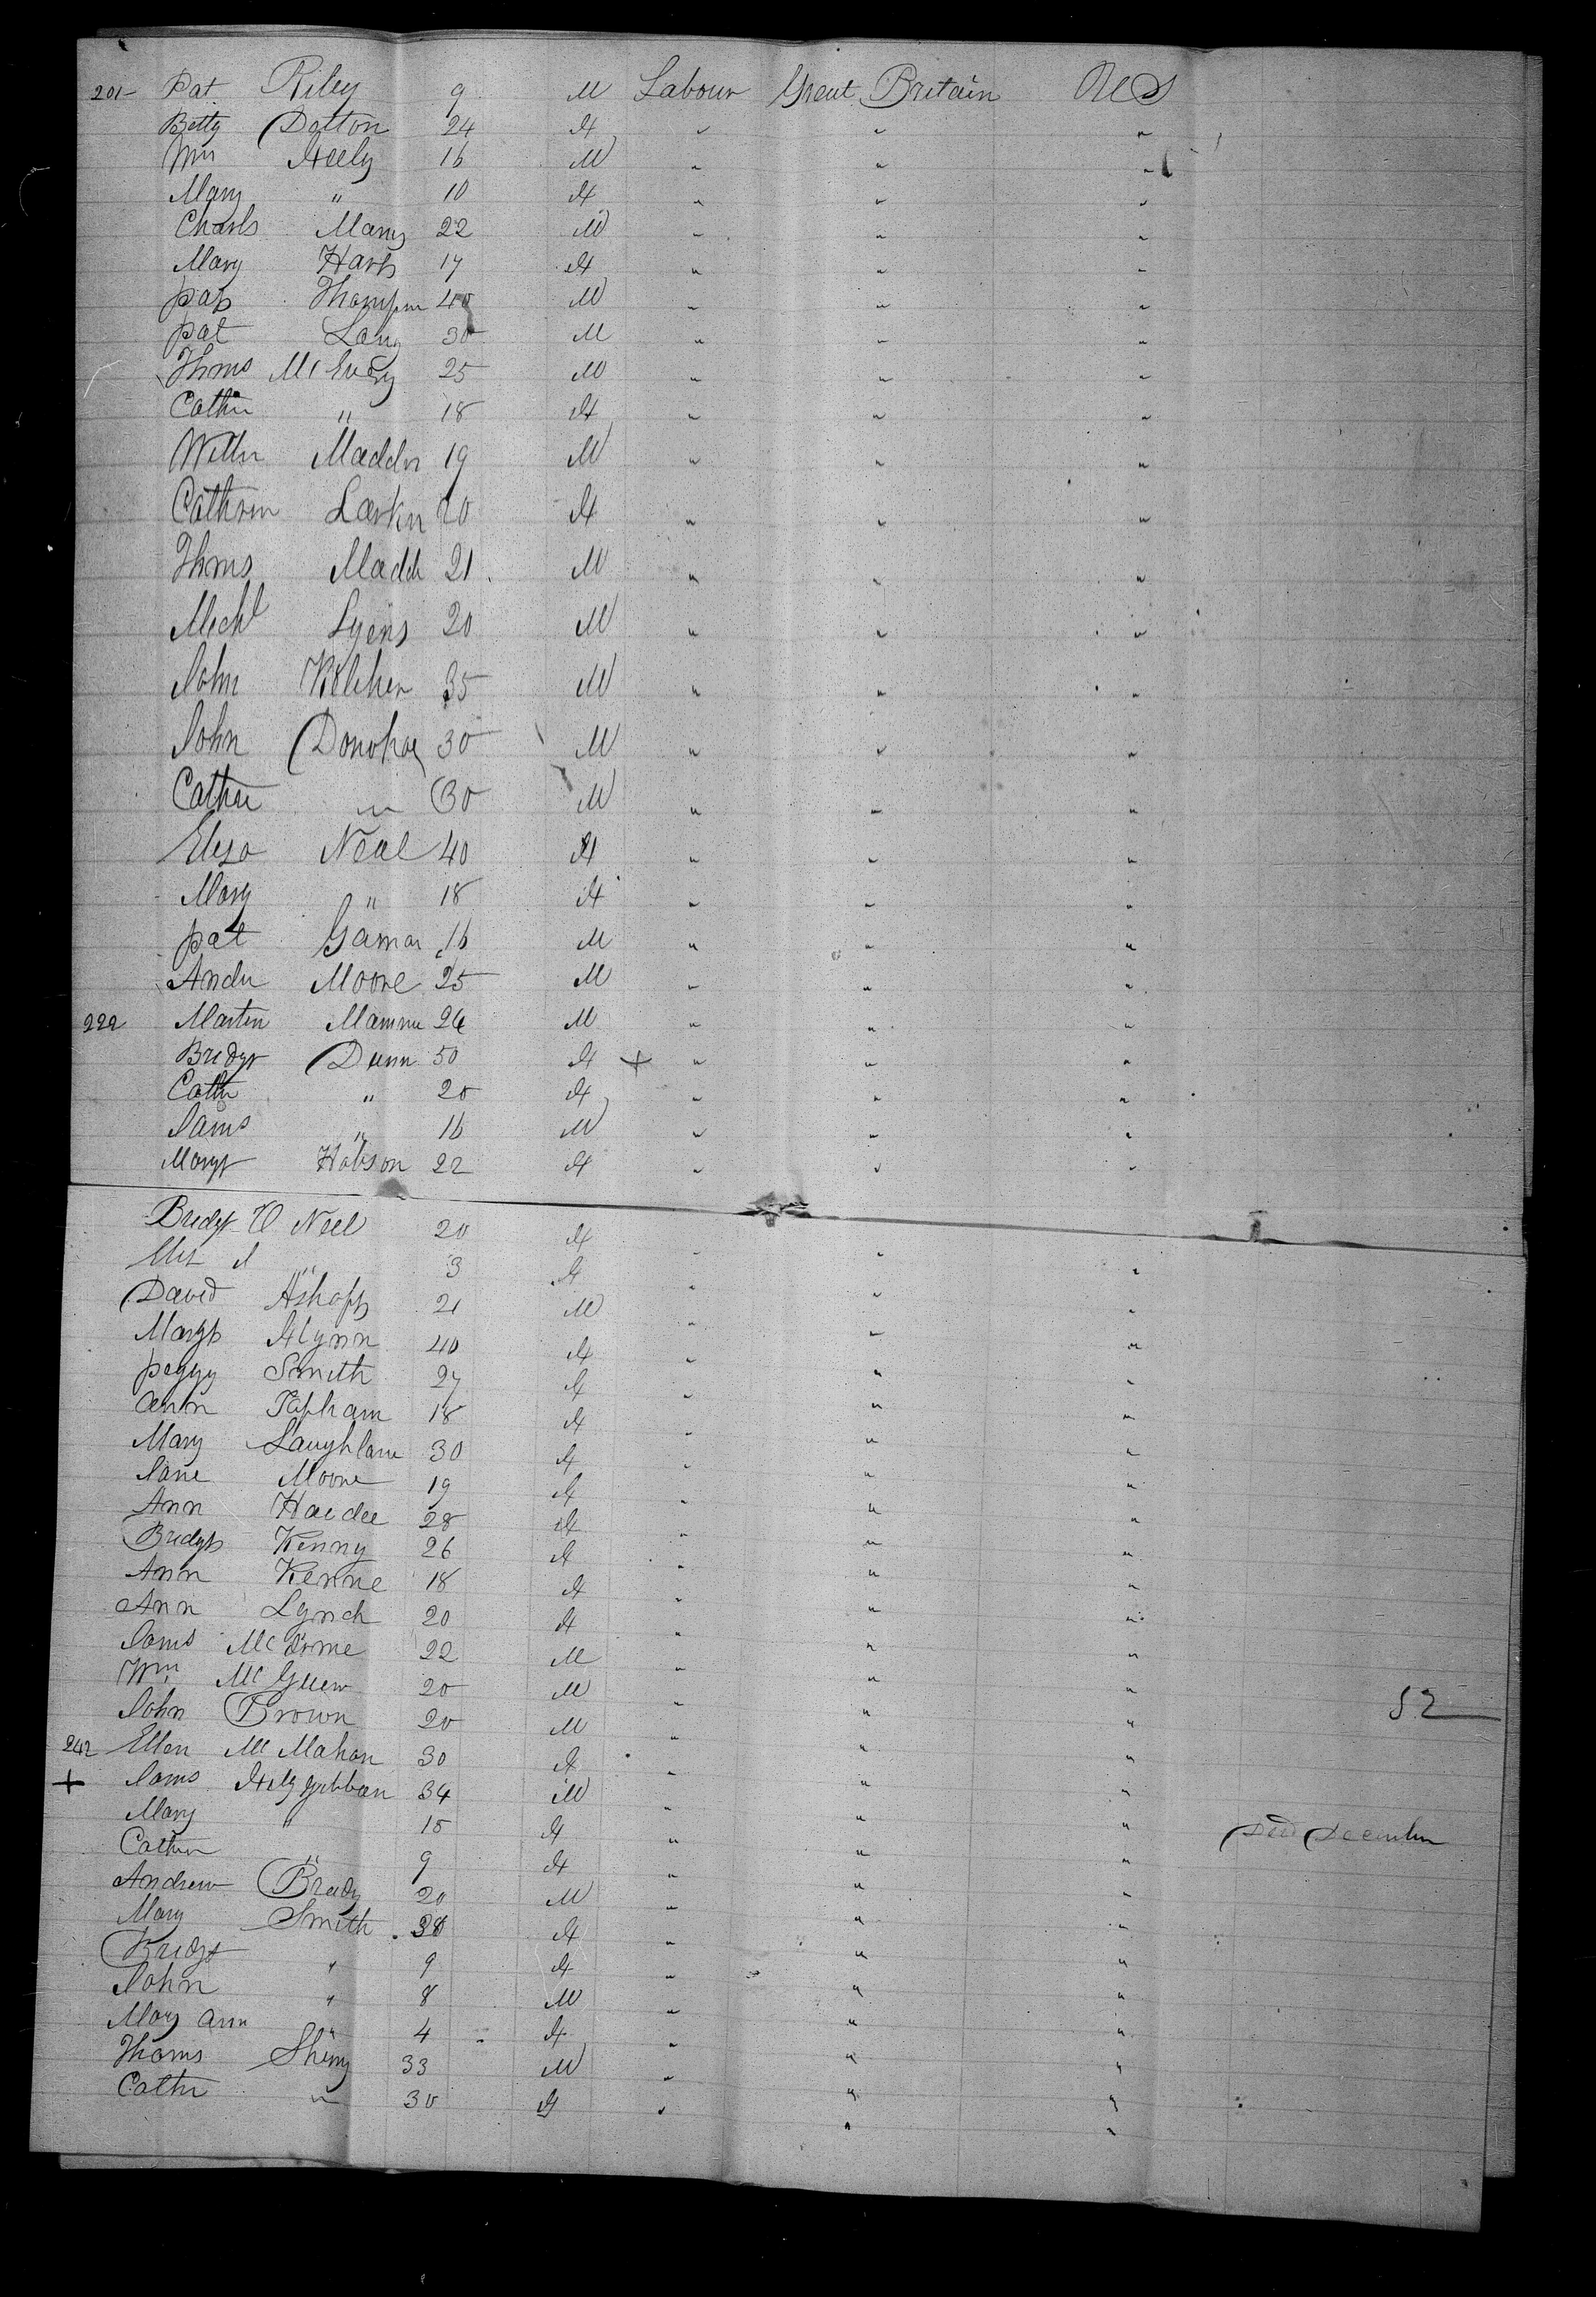 201 Pat Riley 9 M Labour Great Britain U S
Betty Dotton 24 F " " "
Wm Feely 16 M " " "
Mary " 10 F " " "
Charls Many 22 M " " "
Mary Hart 17 F " " "
pat Thompson 40 M " " "
pat Lang 30 M " " "
Thms McEvoy 25 M " " "
Cathn " 18 F " " "
Willm Madden 19 M " " "
Cathren Larkin 20 F " " "
Thms Madd 21 M " " "
Michl Lyons 20 M " " "
John Kelcher 35 M " " "
John Donohoe 30 M " " "
Cathn " 30 M " " "
Elesa Neal 40 F " " "
Mary " 18 F " " "
pat 16 M " " "
Andw Moore 25 M " " "
222 Marten 26 M " " "
Bredgt Dunn 50 F + " " "
Cathn " 20 F " " "
Jams " 16 M " " "
Margt Hobson 22 F " " "
Bredgt O Neel 20 F " " "
" 3 F " " "
David 21 M " " "
Margt Flynn 40 F " " "
peggy Smith 27 F " " "
Ann Topham 18 F " " "
Mary Laughlane 30 F " " "
Jane Moore 19 F " " "
Ann 28 F " " "
Bredgt Kenny 26 F " " "
Ann Kenne 18 F " " "
Ann Lynch 20 F " " "
Jams 22 M " " "
Wm 20 M " " "
John Brown 20 M " " " 52
242 Ellen McMahon 30 F " " "
+ Jams Fitzgibban 34 M " " "
Mary " 15 F " " " Ded December
Cathrn " 9 F " " "
Andrew Brady 20 M " " "
Mary Smith 38 F " " "
Bridgt " 9 F " " "
John " 8 M " " "
Mary Ann " 4 F " " "
Thoms 33 M " " "
Cathn " 30 F " " "